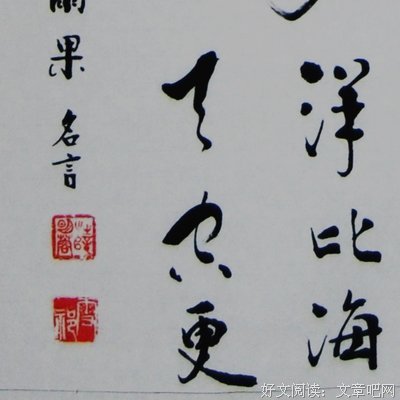 洋比海
天空更
雨果名言
好文阅读:文章吧网